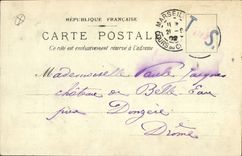 RÉPUBLIQUE FRANÇAISE
CARTE POSTALE
Ce côté est exclusivement réservé à l'adresse
MARSEILLE
T S
Mademoiselle Paule Jacques
château de Belle Eau
près Donzère
Drôme